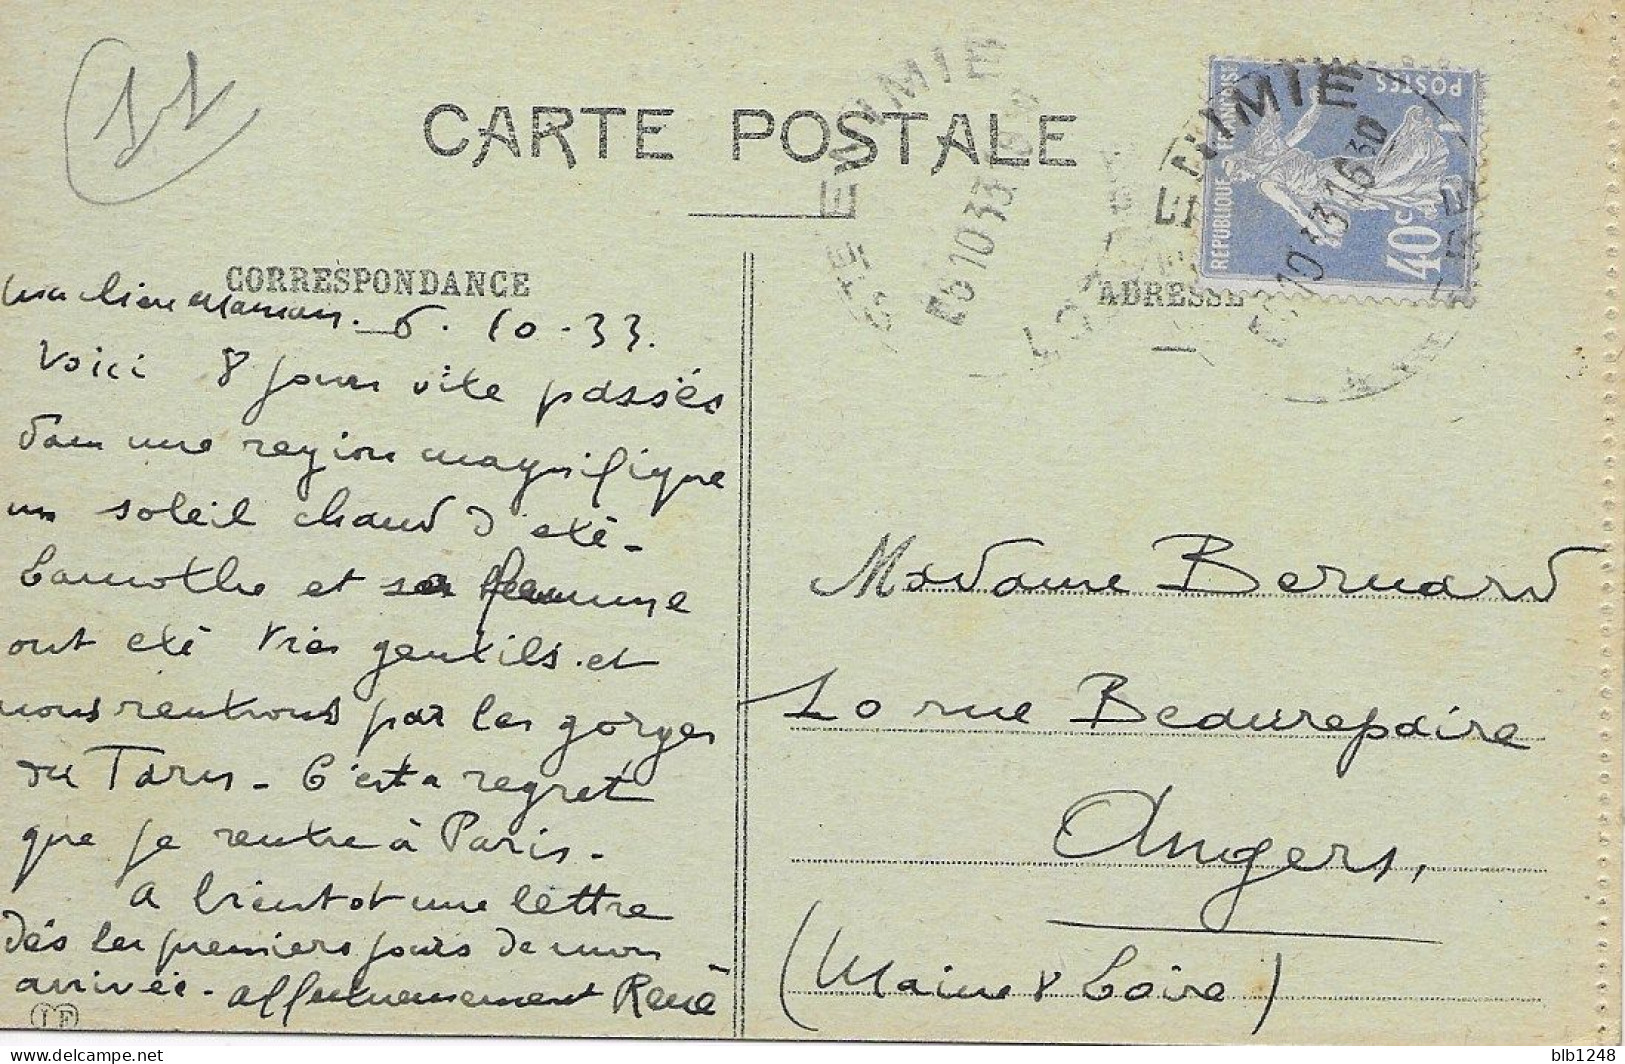 11
CARTE POSTALE
CORRESPONDANCE
ma chère maman. 6. 10. 33.
Voici 8 jours vite passés
dans une region magnifique
un soleil chaud d'eté -
Lamothe et sa femme
ont eté très gentils et
nous rentrons par les gorges
du Tarn - C'est a regret
que je rentre à Paris -
A bientot une lettre
dés les premiers jours de mon
arrivée - affectueusement René
LF
STE ENIMIE
6 10 33
STE ENIMIE
LOZERE
6 10 33 16 30
REPUBLIQUE FRANÇAISE
POSTES
40c
ADRESSE
Madame Bernard
10 rue Beaurepaire
Angers,
(Maine & Loire)
blb1248